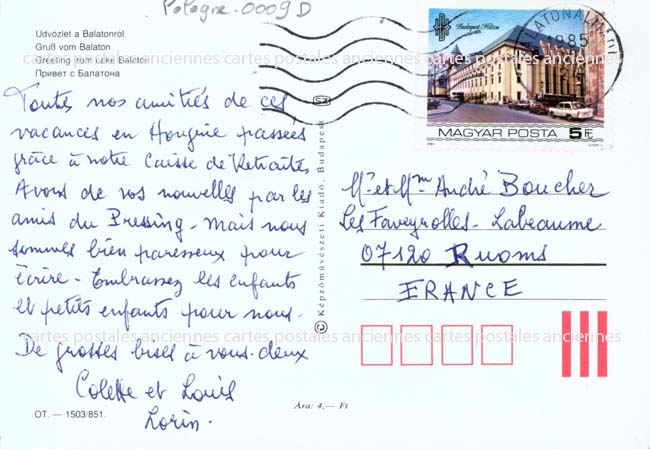 Pologne-0009 D
Üdvözlet a Balatonról
Gruß vom Balaton
Greeting from Lake Balaton
Привет с Балатона
cartes postales anciennes cartes postales anciennes cartes postales anciennes
Toutes nos amitiés de ces
vacances en Hongrie passées
grâce à notre Caisse de Retraite.
Avons de vos nouvelles par les
amis du Pressing - mais nous
sommes bien paresseux pour
écrire - Embrassez les enfants
et petits enfants pour nous.
De grosses bises à vous-deux
Colette et Louis
Lorin.
OT. — 1503/851.
SZ
© Képzőművészeti Kiadó, Budapest
Ára: 4,— Ft
Budapest Hilton
MAGYAR POSTA 5 Ft
BALATONALM
1985
Mr et Mme André Boucher
Les Faveyrolles - Labeaume
07120 Ruoms
FRANCE
cartes postales anciennes cartes postales anciennes cartes postales anciennes